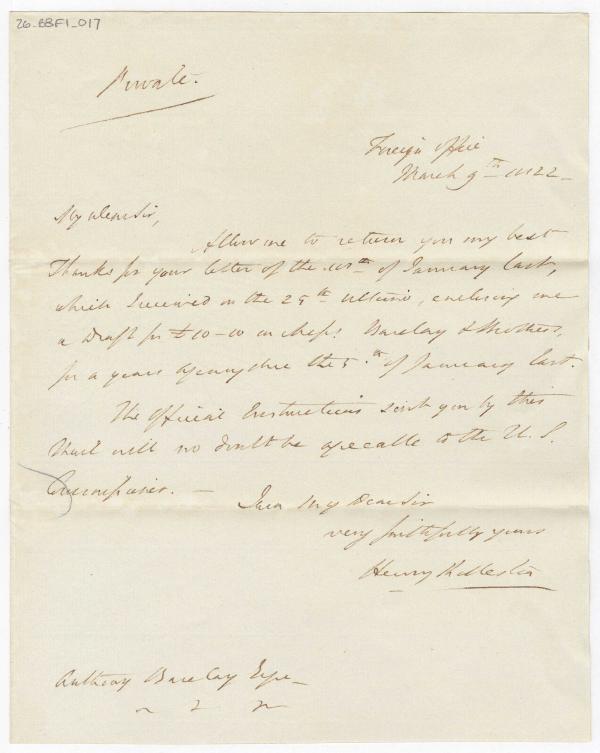 26_BBF1_017
Private.
Foreign Office
March 9th 1822_
My dear Sir,
Allow me to return you my best
Thanks for your letter of the 10th of January last,
which I received on the 25th ultimo, enclosing me
a Draft for £10-10 on Messrs Barclay & Brothers,
for a years agency due the 5th of January last.
The official Instructions sent you by this
Mail will no doubt be agreeable to the U. S.
Commissioner. —
I am My Dear Sir
very faithfully yours
Henry
Anthony Barclay Esqre_